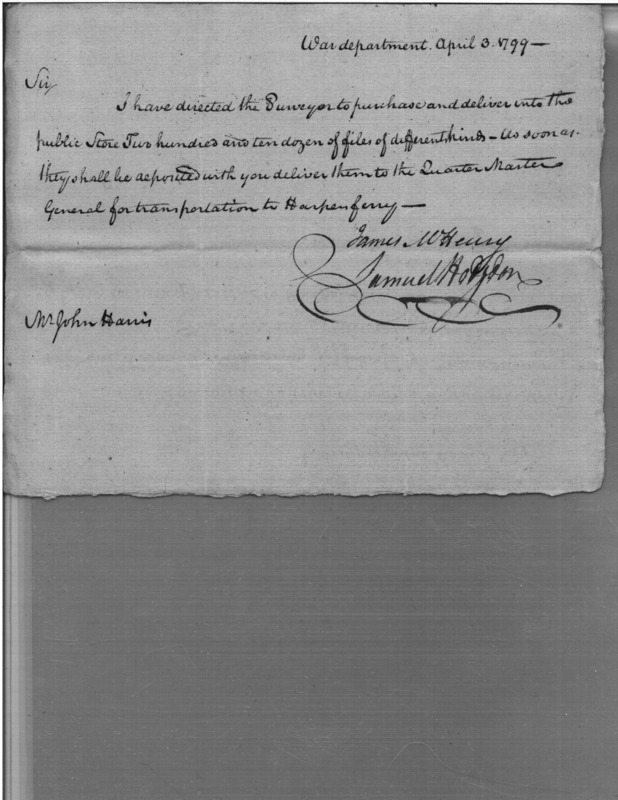 War department. April 3. 1799 —
Sir,
I have directed the Purveyor to purchase and deliver into the
public Store Two hundred and ten dozen of files of different kinds – As soon as
they shall be deposited with you deliver them to the Quarter Master
General for transportation to Harpersferry —
James McHenry
Samuel Hodgdon
Mr John Harris